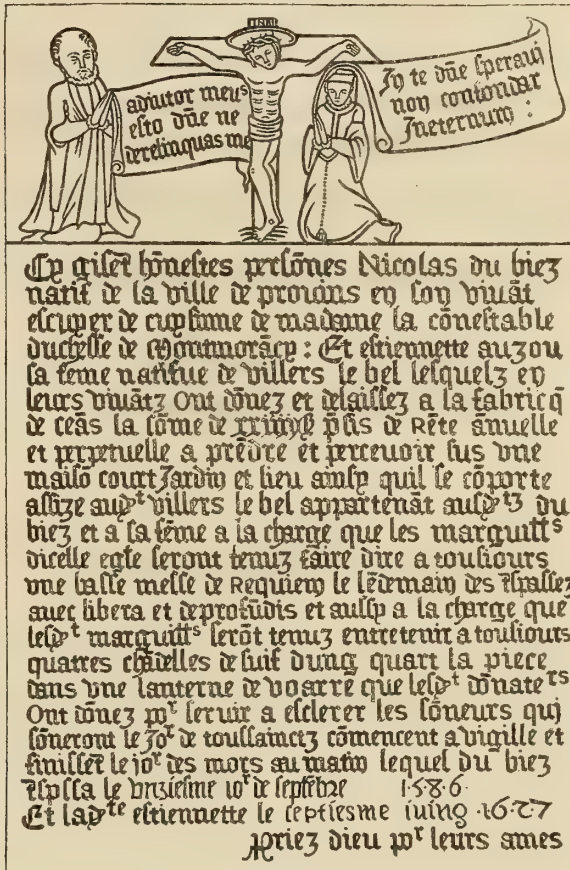 INRI
adiutor meus
esto dn̄e ne
derelinquas me
In te dn̄e speraui
non confondar
Ineternum :
Cy gisēt hōnestes persōnes Nicolas du biez
natif de la ville de prouins en son viuāt
escuyer de cuysinne de madame la cōnestable
duchesse de Montmorācy : Et estiennette auzou
sa fēme natifue de villers le bel lesquelz en
leurs viuātz Ont dōnez et delaissez a la fabricq̄
de ceās la sōme de p̄sis de Rēte ānuelle
et perpetuelle a prēdre et perceuoir sus vne
maisō court Jardin et lieu ainsy quil se cōporte
assize audt villers le bel appartenāt ausdtz du
biez et a sa fēme a la charge que les marguilts
dicelle egl̄e seront tenuz faire dire a tousiours
vne basse messe de Requiem le lēdemain des trāssez
auec libera et deprofūdis et aussy a la charge que
lesdt marguilts serōt tenuz entretenir a tousiours
quatres chādelles de suif dung quart la piece
dans vne lanterne de voarre que lesdt dōnaters
Ont dōnez por seruir a esclerer les sōneurs qui
sōneront le Jor de toussainctz cōmencent a vigille et
finissēt le jor des mors au matin lequel du biez
trēspssa le vnziesme ior de septēbre 1586
Et ladte estiennette le septiesme iuing 1627
priez dieu por leurs ames